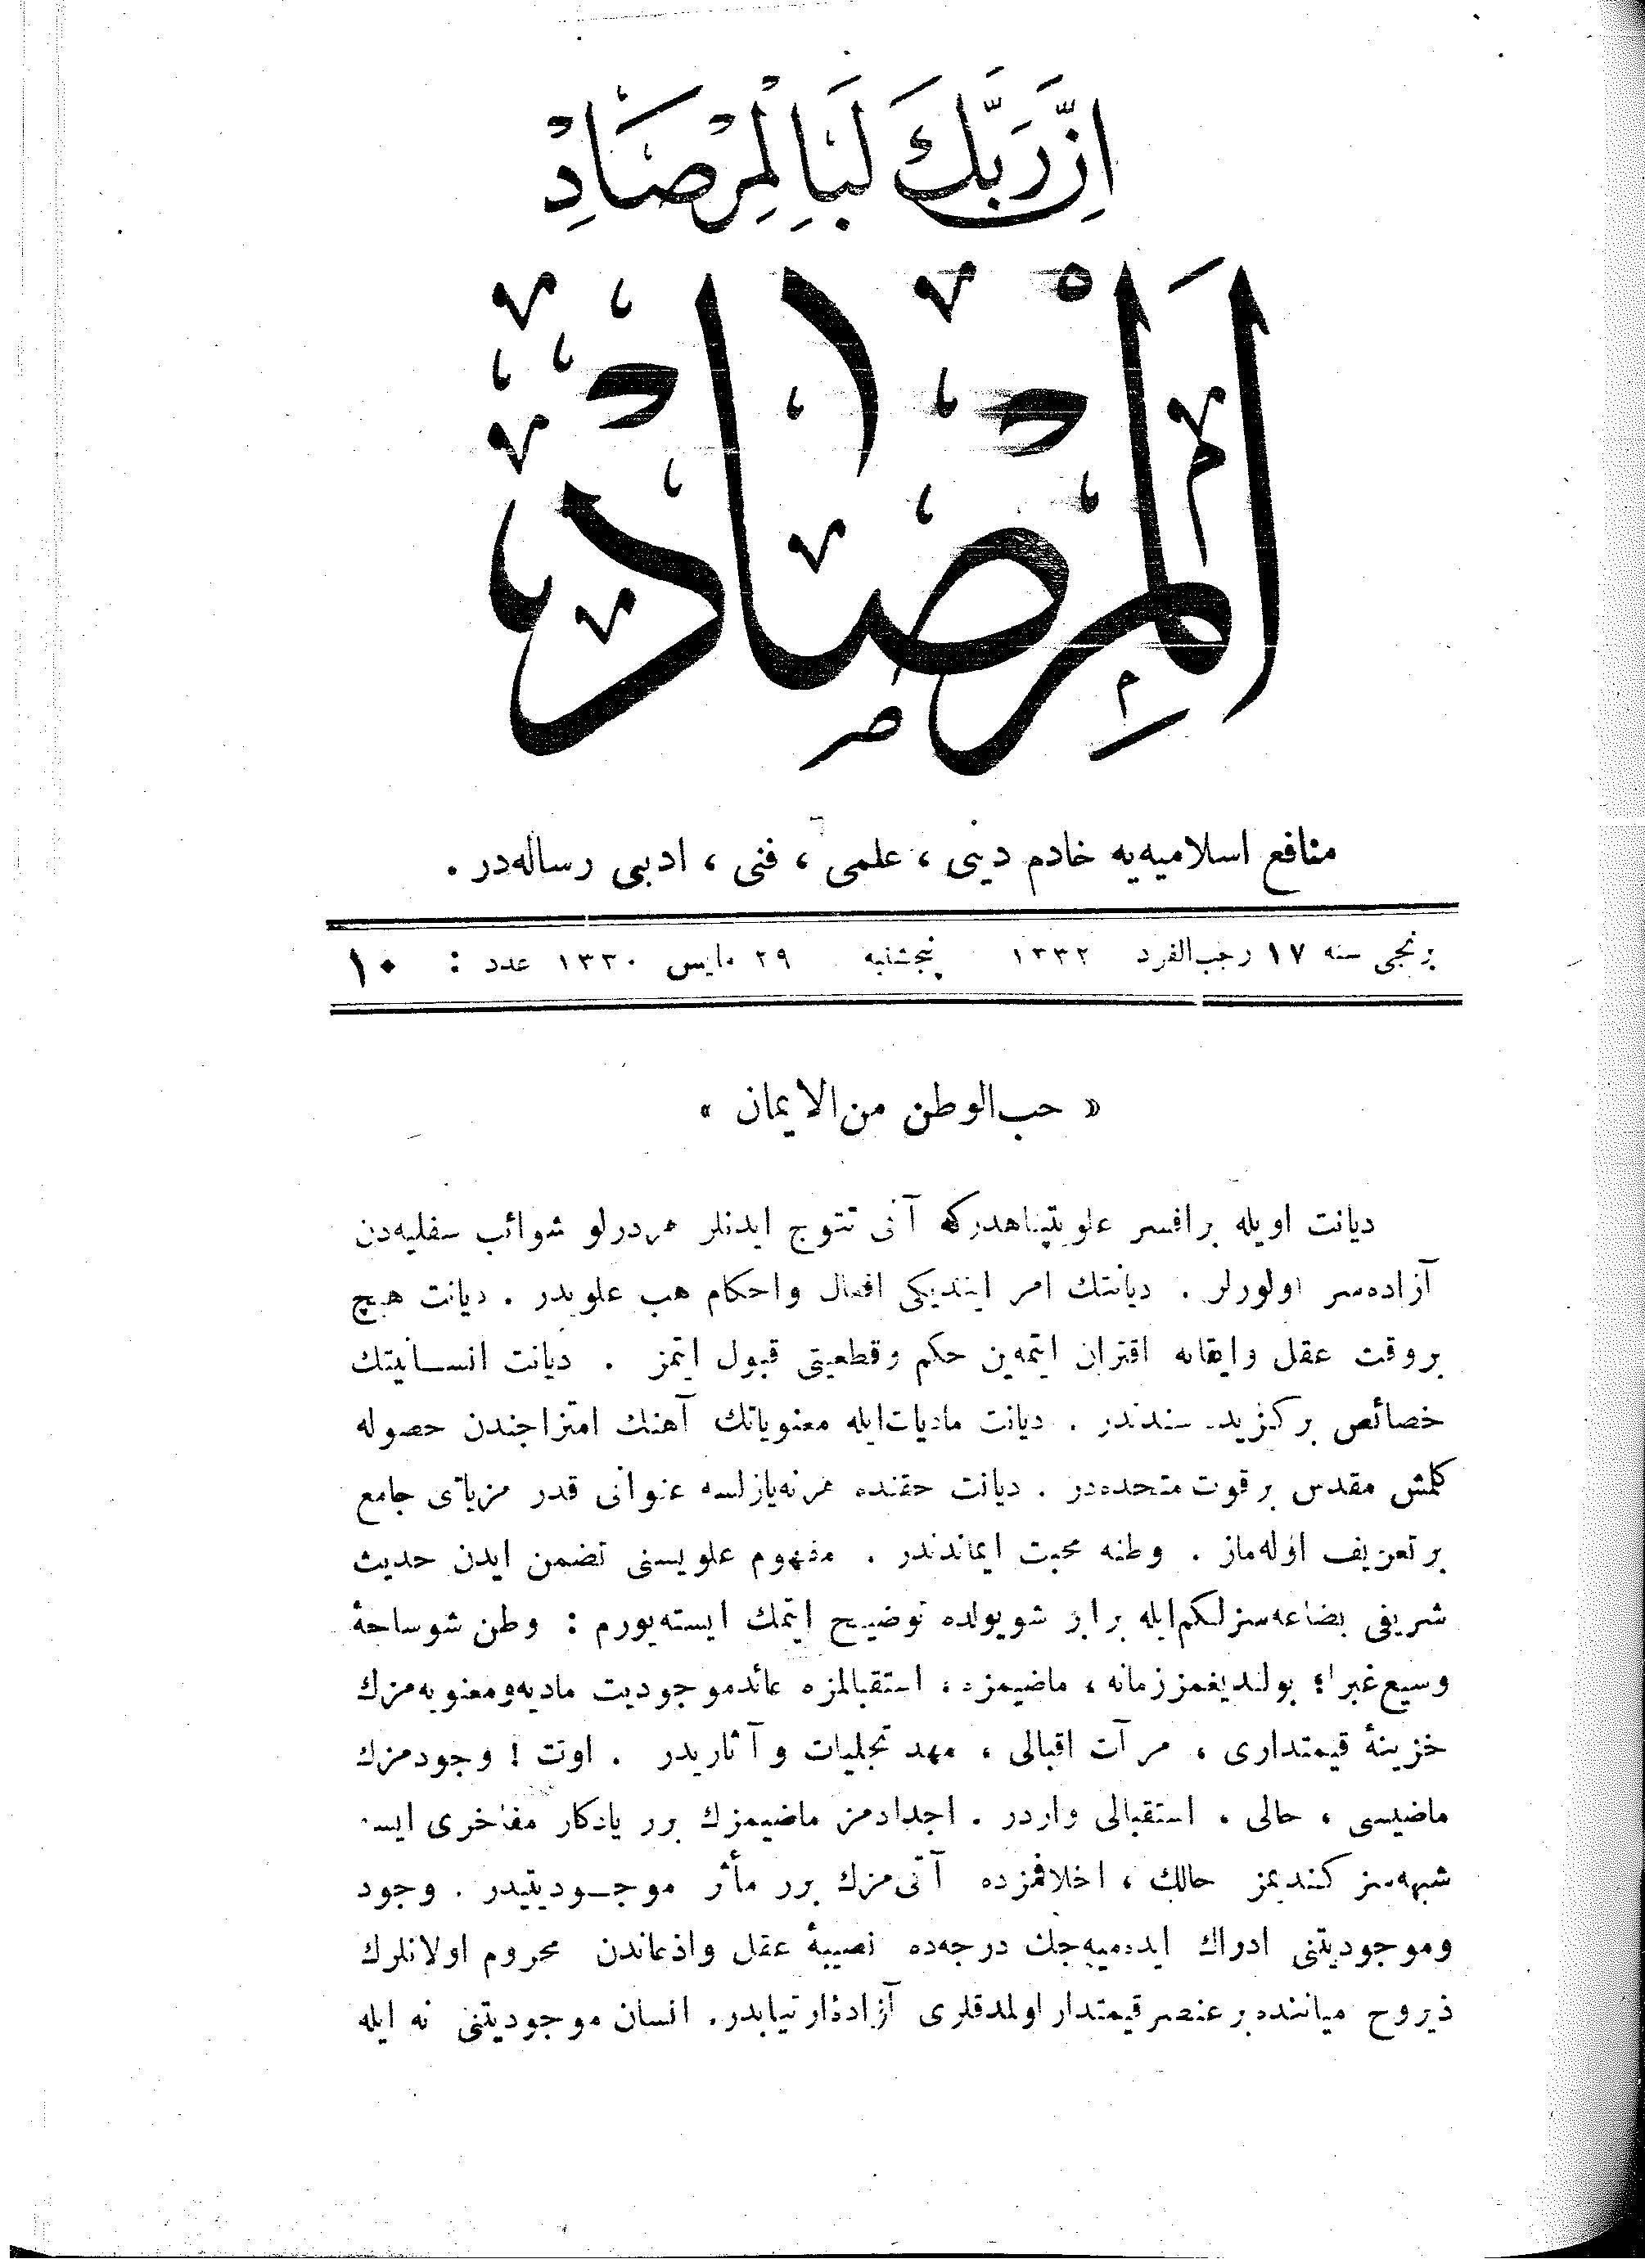 اِنَّ رَبَّكَ لَبِالْمِرْصَادِ
اَلْمِرْصَادْ
منافع اسلاميه‌يه خادم دينى ، علمى ، فنى ، ادبى رساله‌در .
برنجى سنه ١٧ رجب‌الفرد ١٣٣٢ پنجشنبه ٢٩ مايس ١٣٣٠ عدد : ١٠
« حب‌الوطن من‌الايمان »
ديانت اويله برافسر علويتپناهدركه آنى تتوج ايدنلر هردرلو شوائب سفليه‌دن
آزاده‌سر اولورلر . ديانتك امر ايتديكى افعال واحكام هب علويدر . ديانت هيچ
بروقت عقل وايقانه اقتران ايتمه‌ين حكم وقطعيتى قبول ايتمز . ديانت انسانيتك
خصائص بركزيده سندندر . ديانت ماديات‌ايله معنوياتك آهنك امتزاجندن حصوله
كلمش مقدس برقوت متحده‌در . ديانت حقنده هرنه‌يازلسه عنوانى قدر مزياتى جامع
برتعريف اوله‌ماز . وطنه محبت ايماندندر . مفهوم علويسنى تضمن ايدن حديث
شريفى بضاعه‌سزلكم‌ايله برابر شويولده توضيح ايتمك ايسته‌يورم : وطن شوساحۀ
وسيع‌غبرا ؛ بولنديغمززمانه ، ماضيمزه ، استقبالمزه عائدموجوديت ماديه‌ومعنويه‌مزك
خزينۀ قيمتدارى ، مرآت اقبالى ، مهد تجليات وآثاريدر . اوت ! وجودمزك
ماضيسى ، حالى ، استقبالى واردر . اجدادمز ماضيمزك برر يادكار مفاخرى ايسه
شبهه‌سز كنديمز حالك ، اخلافمزده آتى‌مزك برر مأثر موجوديتيدر . وجود
وموجوديتنى ادراك ايده‌ميه‌جك درجه‌ده نصيبۀ عقل واذعاندن محروم اولانلرك
ذيروح مياننده برعنصر قيمتدار اولمدقلرى آزادۀارتيابدر. انسان موجوديتنى نه ايله